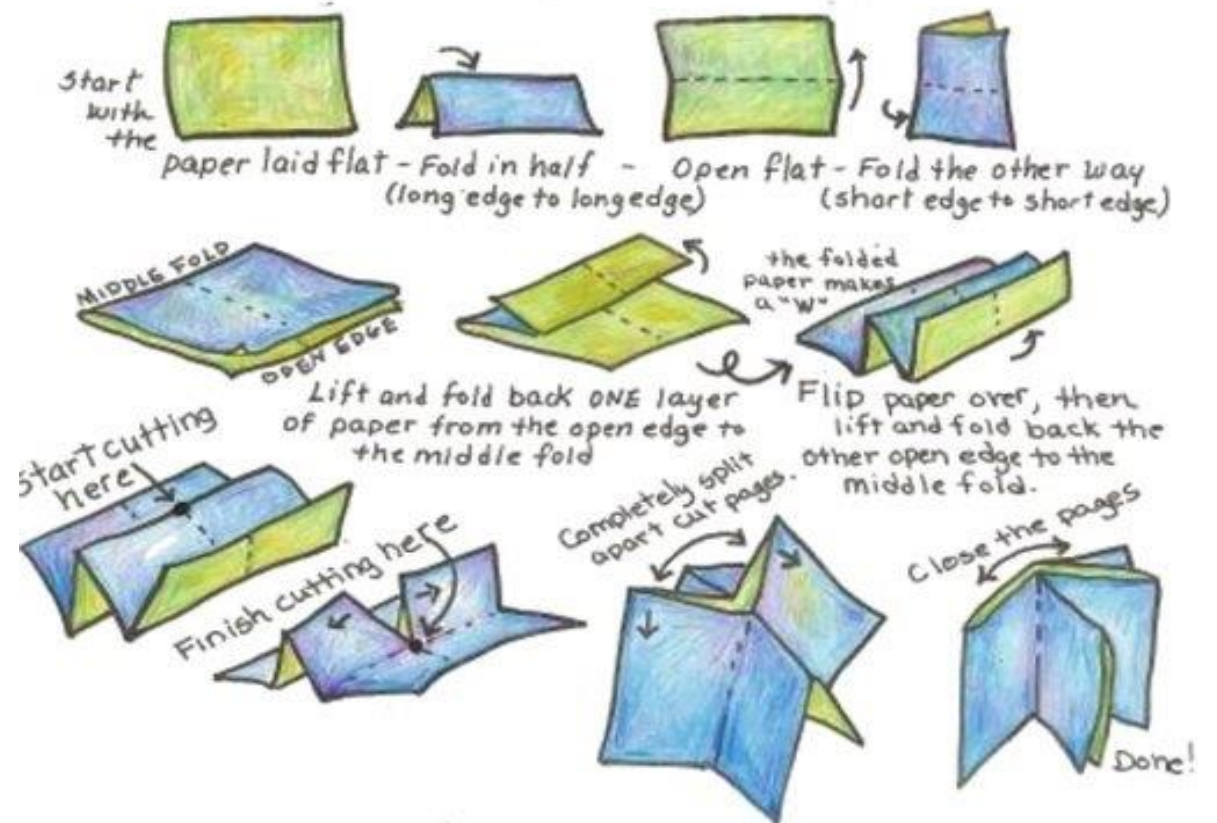 Start
with
the
paper laid flat - Fold in half - Open flat - Fold the other way
(long edge to long edge) (short edge to short edge)
MIDDLE FOLD
OPEN EDGE
the folded
paper makes
a "W"
Lift and fold back ONE layer
of paper from the open edge to
the middle fold
Flip paper over, then
lift and fold back the
other open edge to the
middle fold.
Start cutting
here
Finish cutting here
Completely split
apart cut pages.
Close the pages
Done!